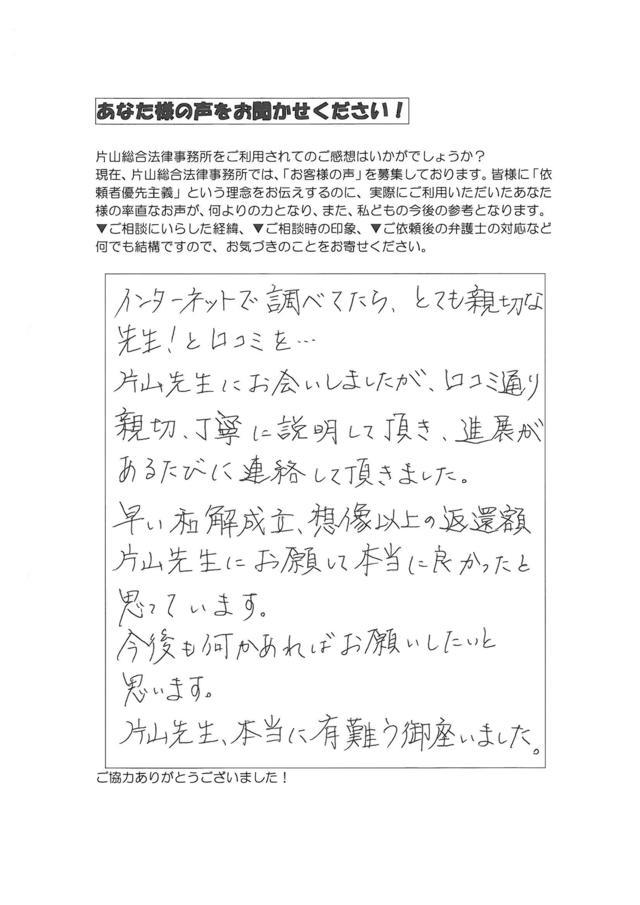 あなた様の声をお聞かせください！
片山総合法律事務所をご利用されてのご感想はいかがでしょうか？
現在、片山総合法律事務所では、「お客様の声」を募集しております。皆様に「依
頼者優先主義」という理念をお伝えするのに、実際にご利用いただいたあなた
様の率直なお声が、何よりの力となり、また、私どもの今後の参考となります。
▼ご相談にいらした経緯、▼ご相談時の印象、▼ご依頼後の弁護士の対応など
何でも結構ですので、お気づきのことをお寄せください。
インターネットで調べてたら、とても親切な
先生！と口コミを…
片山先生にお会いしましたが、口コミ通り
親切、丁寧に説明して頂き、進展が
あるたびに連絡して頂きました。
早い和解成立、想像以上の返還額
片山先生にお願して本当に良かったと
思っています。
今後も何かあればお願いしたいと
思います。
片山先生、本当に有難う御座いました。
ご協力ありがとうございました！